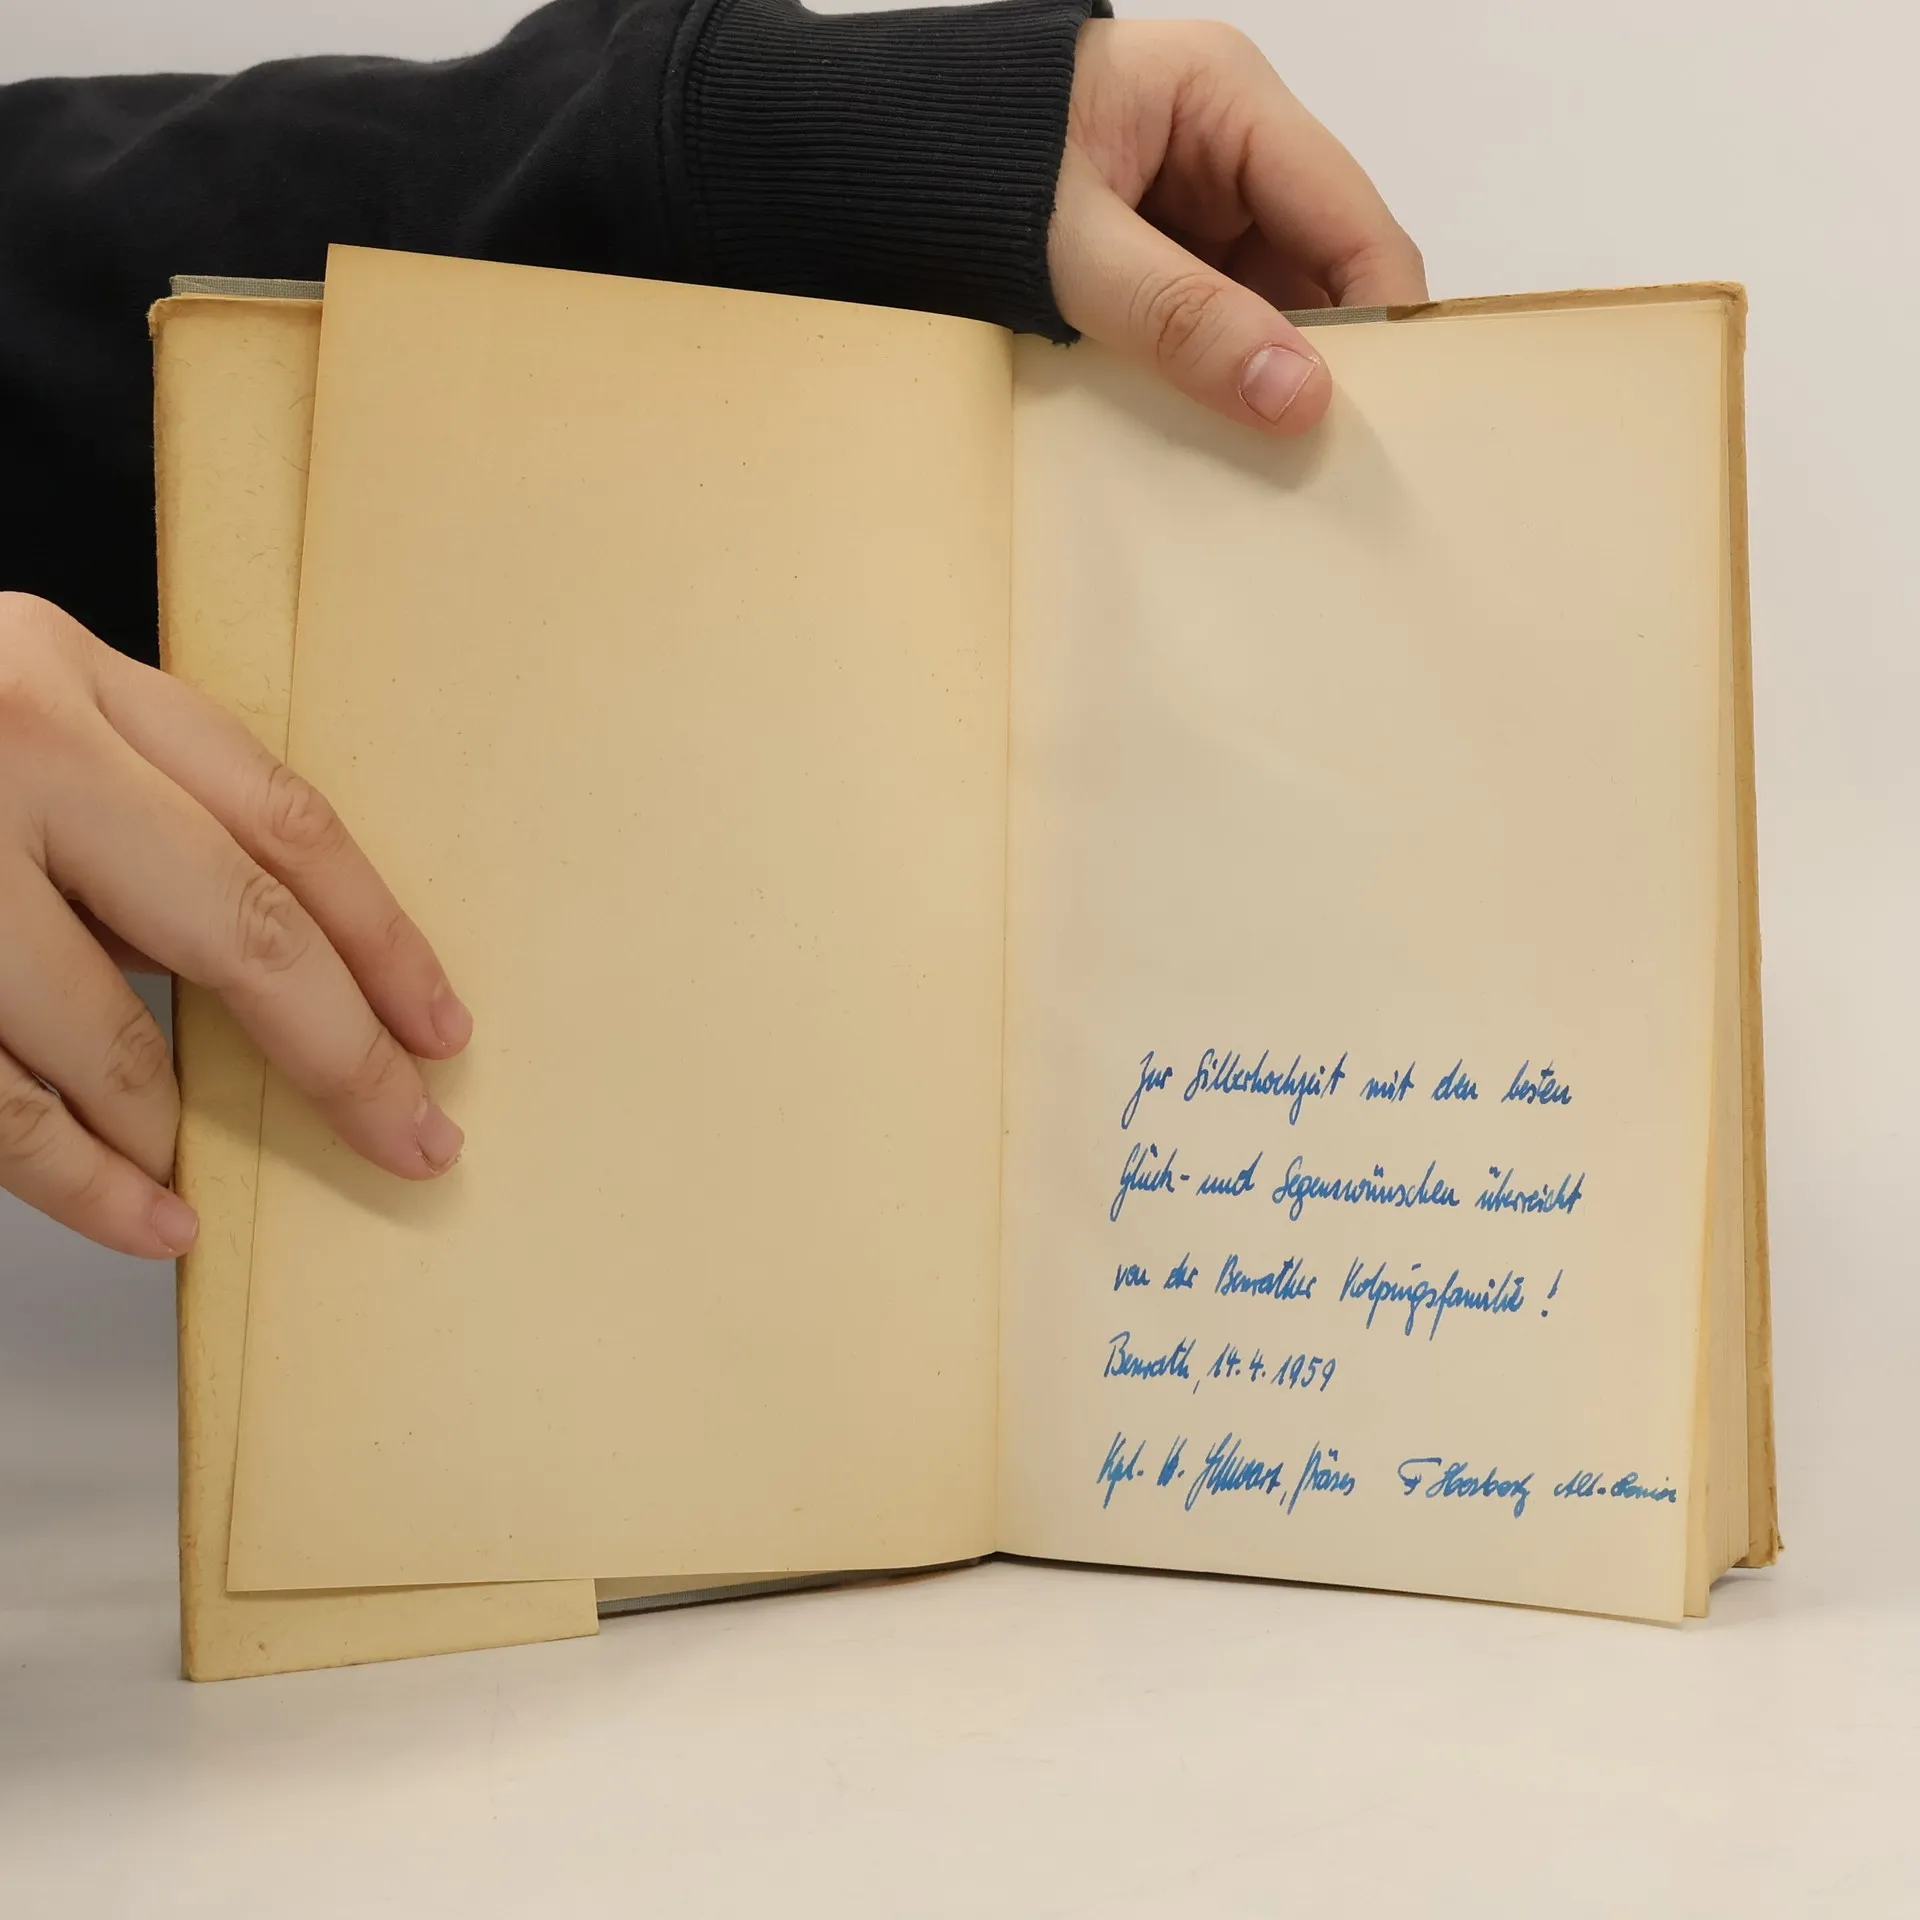 Zur Silberhochzeit mit den besten
Glück- und Segenswünschen überreicht
von der Benrather Kolpingsfamilie!
Benrath, 14.4.1959
Kpl. W. Schwarz, Präses F Herbertz Alt-Senior